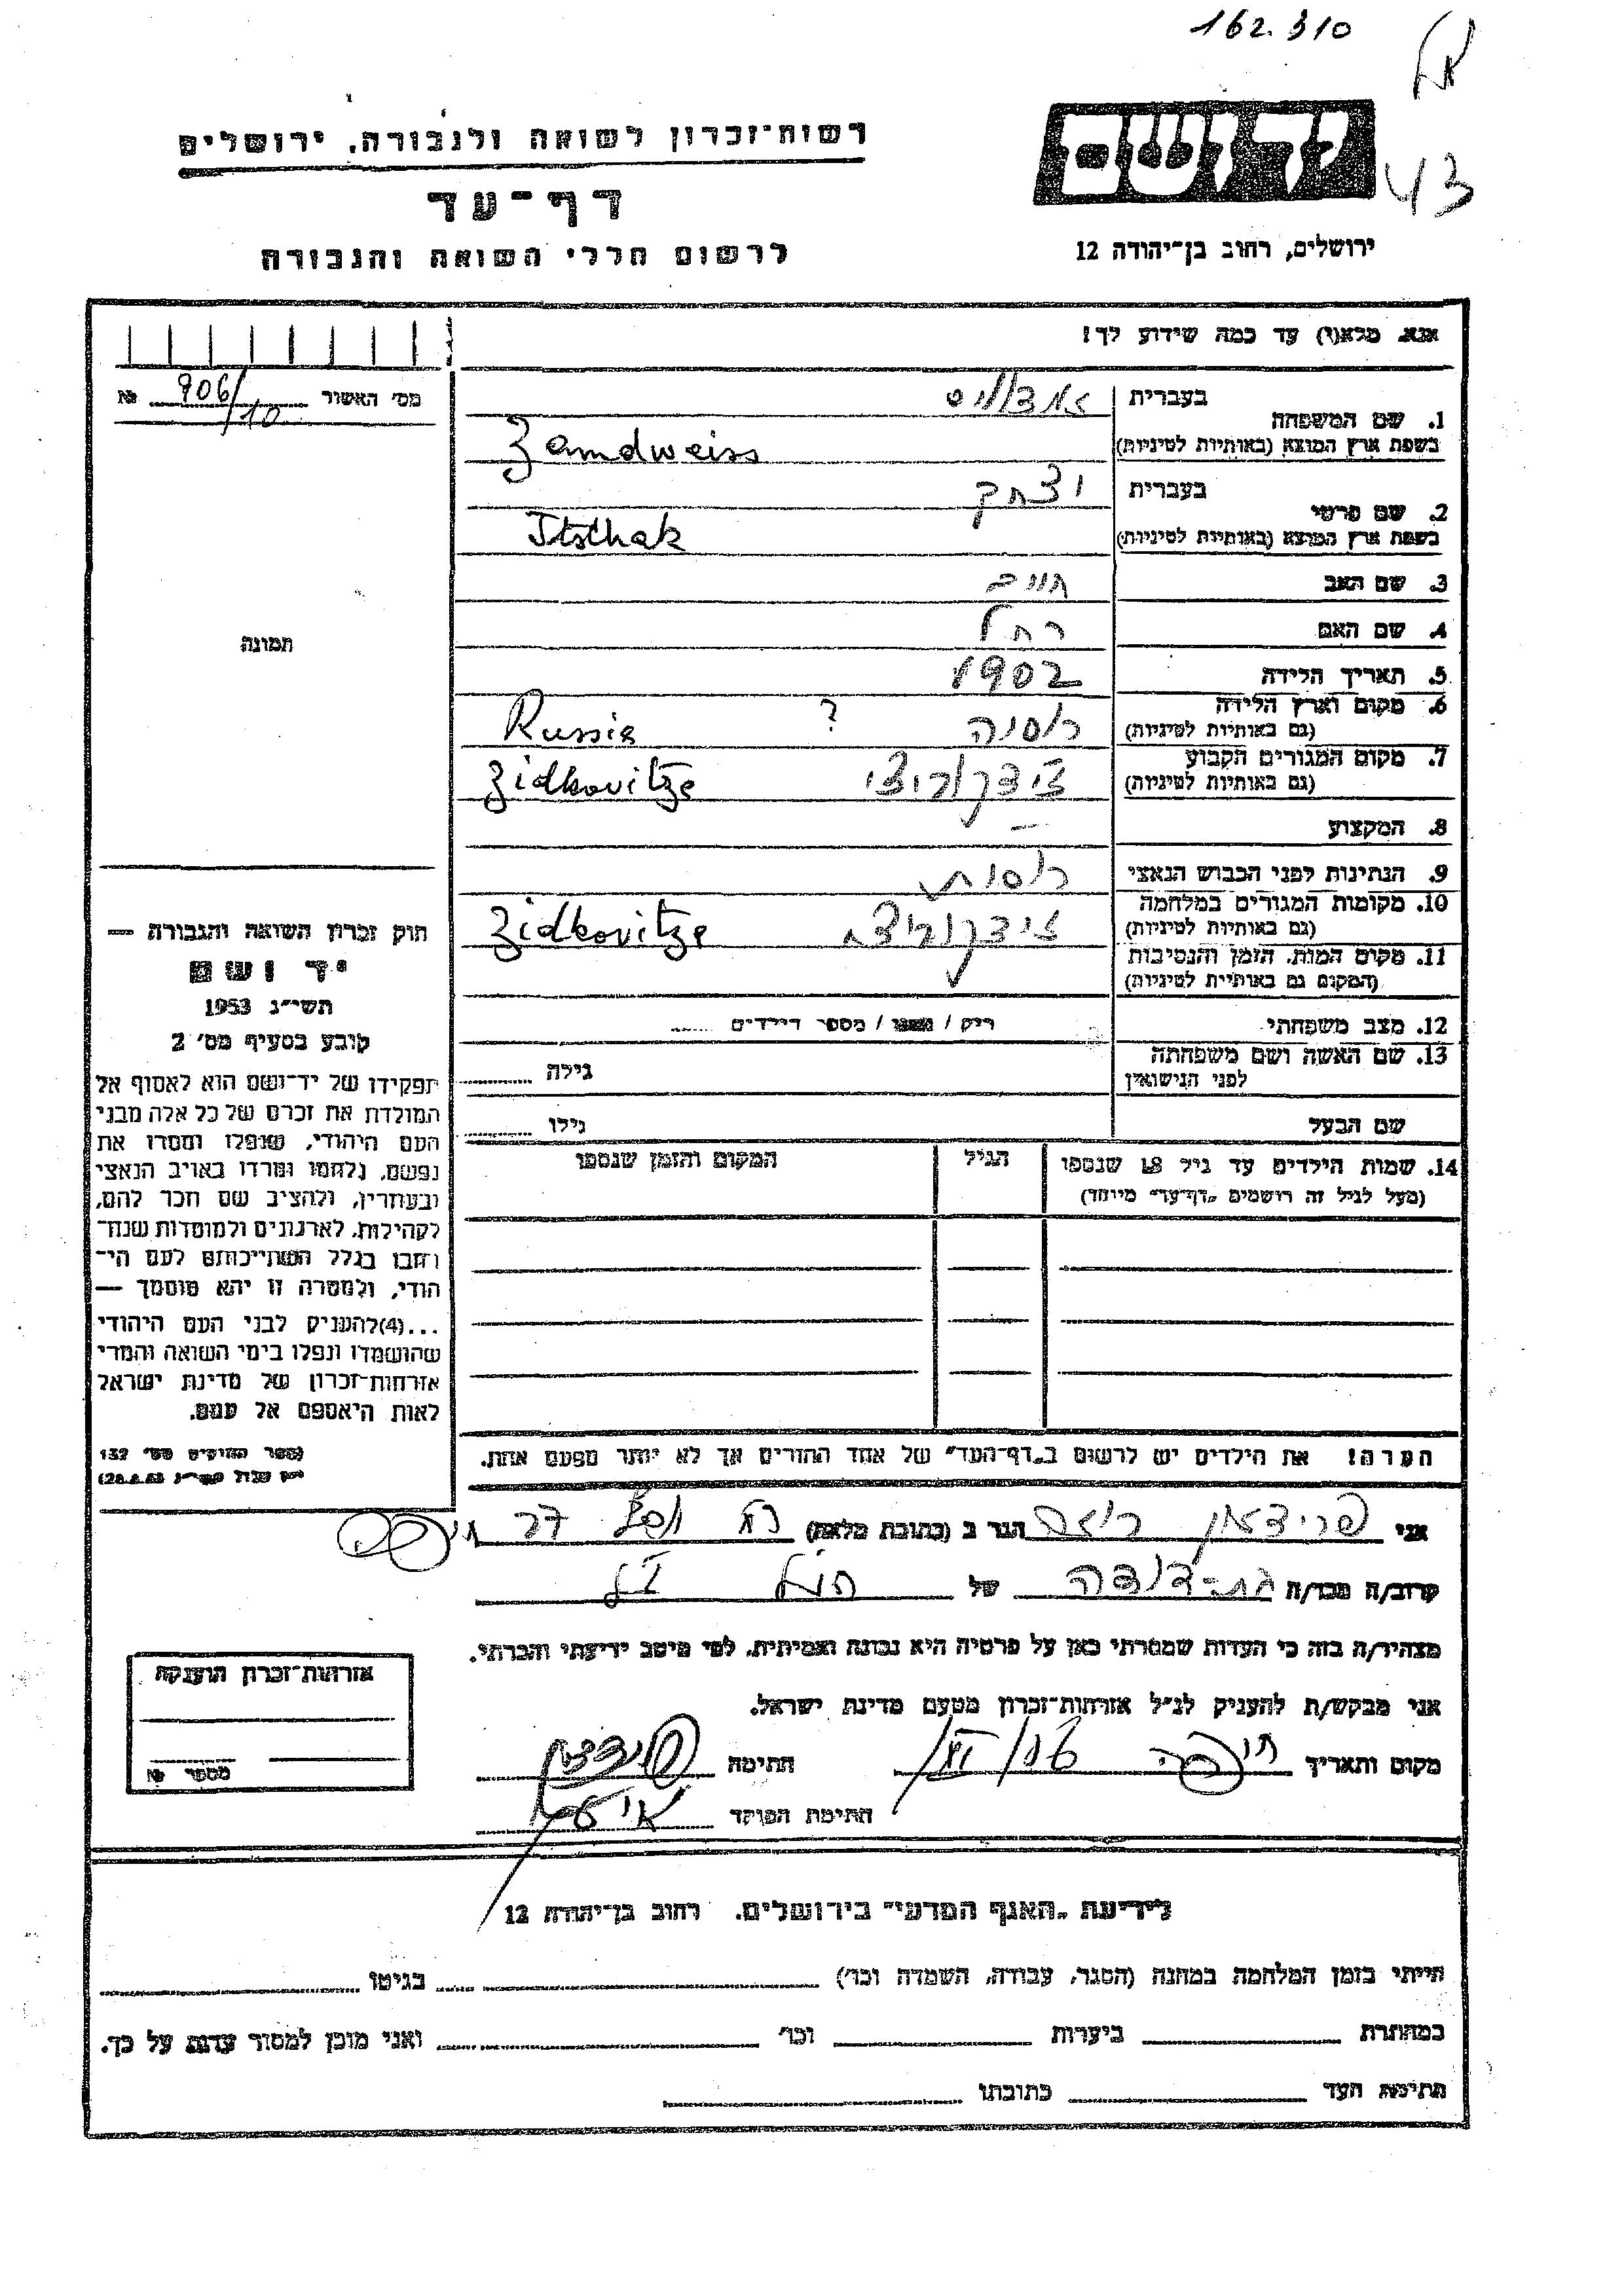 162.310
43
יד ושם
רשות-זכרון לשואה ולגבורה, ירושלים
דף-עד
לרשום חללי השואה והגבורה
ירושלים, רחוב בן-יהודה 12
אנא, מלא(י) עד כמה שידוע לך!
מס' האשור 906/10 №
1. שם המשפחה
בעברית זמדוויס
בשפת ארץ המוצא (באותיות לטיניות) Zamdweiss
2. שם פרטי
בעברית יצחק
בשפת ארץ המוצא (באותיות לטיניות) Itsthak
3. שם האב
4. שם האם רחל
5. תאריך הלידה 1902
6. מקום וארץ הלידה
(גם באותיות לטיניות) רוסיה ? Russia
7. מקום המגורים הקבוע
(גם באותיות לטיניות) זידקוביצי Zidkovitze
8. המקצוע —
9. הנתינות לפני הכבוש הנאצי רוסית
10. מקומות המגורים במלחמה
(גם באותיות לטיניות) זידקוביצה Zidkovitze
11. מקום המות, הזמן והנסיבות
(המקום גם באותיות לטיניות)
12. מצב משפחתי רווק / נשוי / מספר הילדים ......
13. שם האשה ושם משפחתה
לפני הנישואין גילה
שם הבעל גילו
14. שמות הילדים עד גיל 18 שנספו
(מעל לגיל זה רושמים "דף-עד" מיוחד)
הגיל
המקום והזמן שנספו
הערה! את הילדים יש לרשום ב"דף-העד" של אחד ההורים אך לא יותר מפעם אחת.
תמונה
חוק זכרון השואה והגבורה —
יד ושם
תשי"ג 1953
קובע בסעיף מס' 2
תפקידו של יד-ושם הוא לאסוף אל
המולדת את זכרם של כל אלה מבני
העם היהודי, שנפלו ומסרו את
נפשם, נלחמו ומרדו באויב הנאצי
ובעוזריו, ולהציב שם וזכר להם,
לקהילות, לארגונים ולמוסדות שנח-
רבו בגלל השתייכותם לעם הי-
הודי, ולמטרה זו יהא מוסמך —
...(4)להעניק לבני העם היהודי
שהושמדו ונפלו בימי השואה והמרי
אזרחות-זכרון של מדינת ישראל
לאות היאספם אל עמם.
(ספר החוקים מס' 132
אני פרידמן הגר ב (כתובת מלאה)
קרוב/ה מכר/ה בת-דודה של
מצהיר/ה בזה כי העדות שמסרתי כאן על פרטיה היא נכונה ואמיתית, לפי מיטב ידיעתי והכרתי.
אני מבקש/ת להעניק לנ"ל אזרחות-זכרון מטעם מדינת ישראל.
מקום ותאריך חיפה חתימה
חתימת הפוקד
אזרחות-זכרון הוענקה
מספר №
לידיעת "האגף המדעי" בירושלים, רחוב בן-יהודה 12
הייתי בזמן המלחמה במחנה (הסגר, עבודה, השמדה וכו') בגיטו
במחתרת ביערות וכו' ואני מוכן למסור עדות על כך.
חתימת העד כתובתו